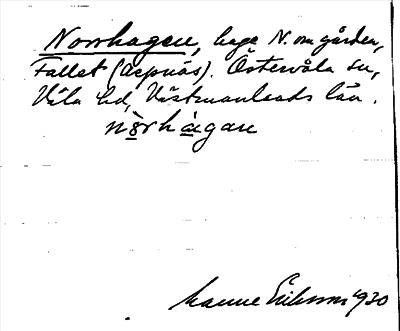 Norrhagen, hage N. om gården,
Fallet (Aspnäs). Östervåla sn,
Våla hd, Västmanlands län.
nòrhàgan
Manne Eriksson 1930